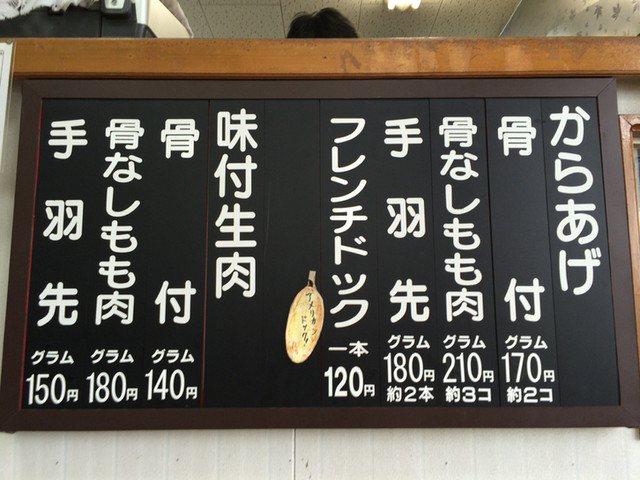 からあげ
骨付
グラム
170円
約2コ
骨なしもも肉
グラム
210円
約3コ
手羽先
グラム
180円
約2本
フレンチドック
一本
120円
アメリカン
ドック!
味付生肉
骨付
グラム
140円
骨なしもも肉
グラム
180円
手羽先
グラム
150円